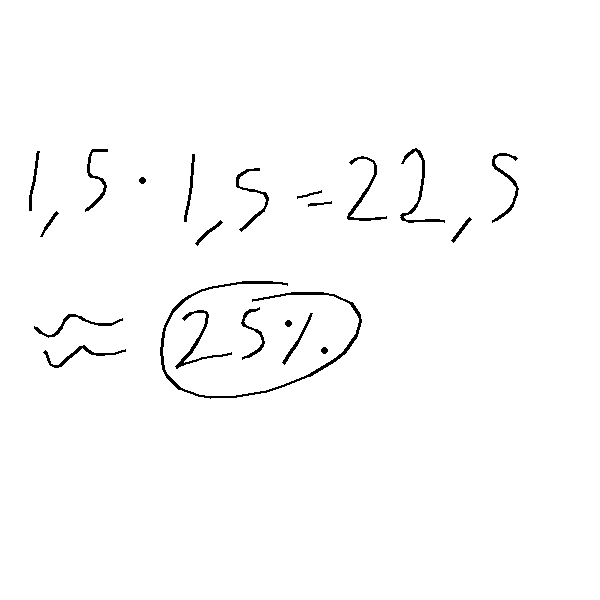 1,5 · 1,5 = 22,5
≈ 25%